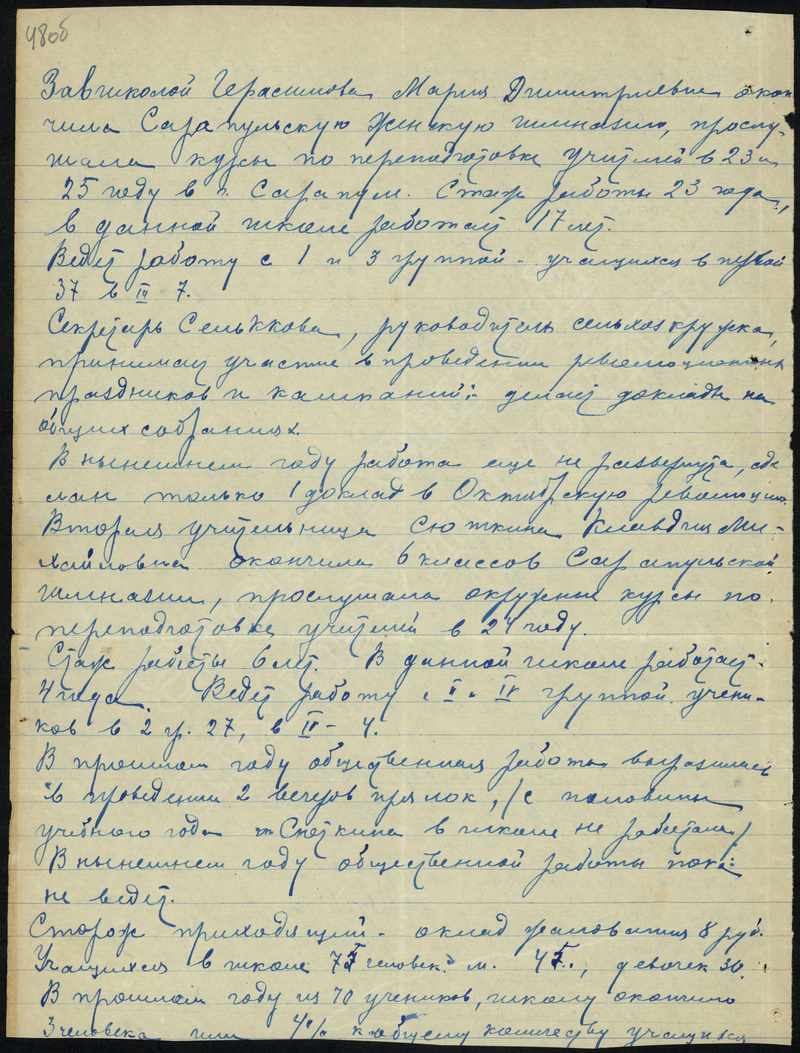 48об
Завшколой Герасимова Мария Димитриевна окон
чила Сарапульскую женскую гимназию, прослу-
шала курсы по переподготовке учителей в 23 и
25 году в г. Сарапуле. Стаж работы 23 года,
в данной школе работает 17 лет.
Ведет работу с 1 и 3 группой - учащихся в первой
37 в III 7.
Секретарь Сельккова, руководитель сельхозкружка,
принимает участие в проведении революционных
праздников и кампаний: делает доклады на
общих собраниях.
В нынешнем году работа еще не развернута, сде
лан только 1 доклад в Октябрьскую революцию.
Вторая учительница Сюткина Клавдия Ми-
хайловна окончила 6 классов Сарапульской
гимназии, прослушала окружные курсы по
переподготовке учителей в 24 году.
Стаж работы 6 лет. В данной школе работает
4 года. Ведет работу с II и IV группой учени-
ков в 2 гр. 27, в IV - 4.
В прошлом году общественная работа выразилась
в проведении 2 вечеров прялок, /с половины
учебного года Сюткина в школе не работала/
В нынешнем году общественной работы пока
не ведет.
Сторож приходящий - оклад жалования 8 руб.
Учащихся в школе 75 человек м. 45, девочек 30.
В прошлом году из 70 учеников, школу окончило
3 человека или 4% к общему количеству учащихся